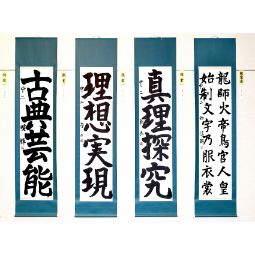 古典芸能
理想実現
真理探究
龍師火帝鳥官人皇
始制文字乃服衣裳